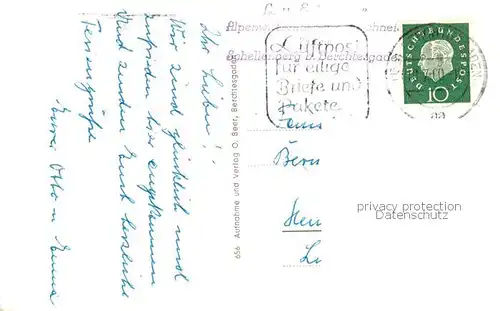 Ihr Lieben!
Wir sind glücklich und
zufrieden hier angekommen
und senden Euch herzliche
Feriengrüße
Eure Otto u Erna
656 Aufnahme und Verlag O. Beer, Berchtesgaden
Schellenberg b Berchtesgaden
Luftpost
für eilige
Briefe und
Pakete
DEUTSCHE BUNDESPOST
10
aa
Bern
privacy protection
Datenschutz